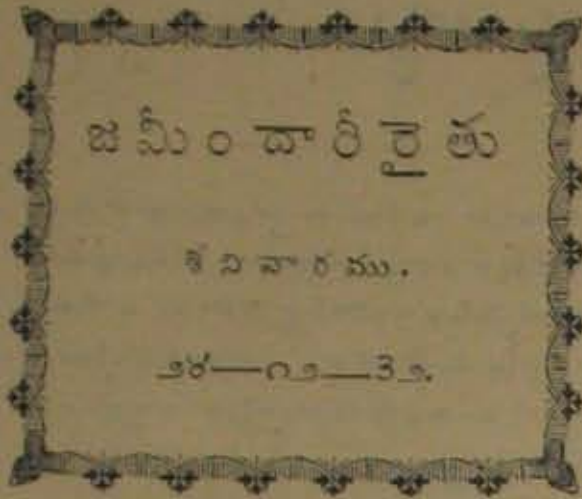 జమీందారీరైతు
శనివారము.
౨౪—౧౨—౩౨.